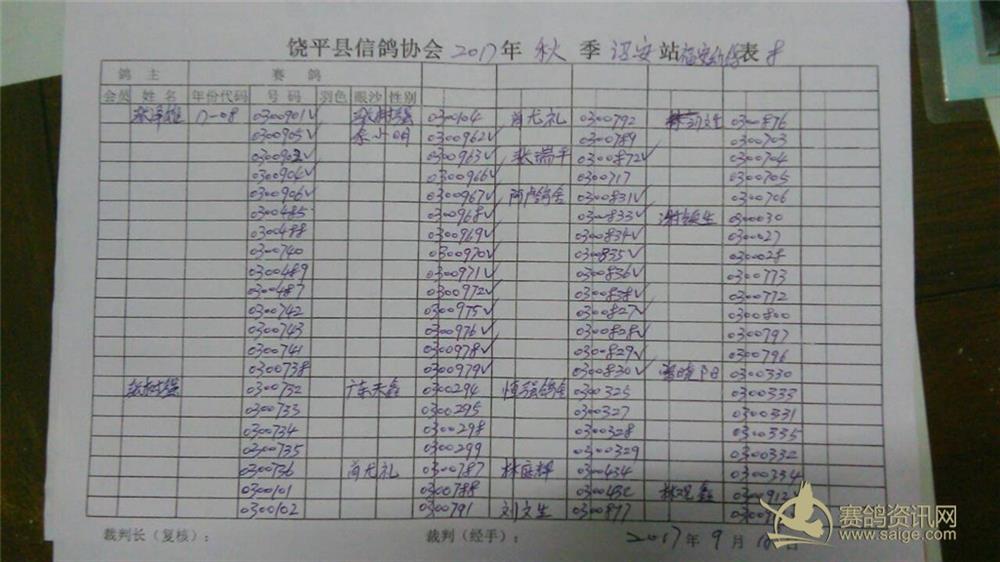 饶平县信鸽协会 2017年 秋 季 诏安 站 表
鸽 主 赛 鸽
会员 姓 名 年份代码 号 码 羽色 眼沙 性别
17-08 0300901√ 0300104 肖尤礼 0300792 0300876
0300905√ 余小明 0300962√ 0300789 0300703
0300902√ 0300963√ 张瑞平 0300872√ 0300704
0300904√ 0300966√ 0300717 0300705
0300906√ 0300967√ 0300831√ 0300706
0300485 0300968√ 0300833√ 030030
0300488 0300969√ 0300834√ 030027
0300740 0300970√ 0300835√ 030028
0300489 0300971√ 0300836√ 0300773
0300487 0300972√ 0300838√ 0300772
0300742 0300975√ 0300827√ 0300800
0300743 0300976√ 0300828√ 0300797
0300741 0300978√ 0300829√ 0300796
0300738 0300979√ 0300830√ 0300330
0300732 广东天鑫 0300294 恒强鸽舍 0300325 0300333
0300733 0300295 0300327 0300331
0300734 0300298 0300328 0300335
0300735 0300299 0300329 0300332
0300736 肖尤礼 0300787 林庭辉 0300434 0300334
0300101 0300788 0300432 0300912√
0300102 0300791 刘文生 0300877
裁判长（复核）： 裁判（经手）： 2017年 9 月 日
赛鸽资讯网
www.saige.com